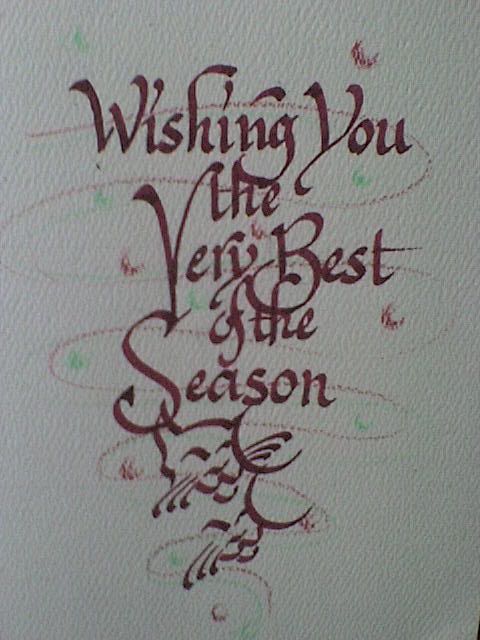 Wishing You
the
Very Best
of the
Season